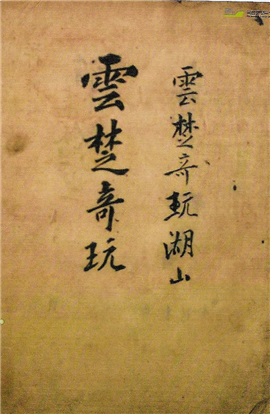 雲楚奇玩湖山
雲楚奇玩